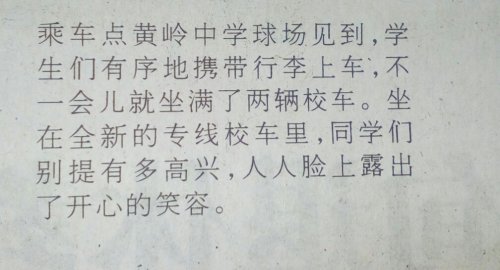 乘车点黄岭中学球场见到,学
生们有序地携带行李上车,不
一会儿就坐满了两辆校车。坐
在全新的专线校车里,同学们
别提有多高兴,人人脸上露出
了开心的笑容。